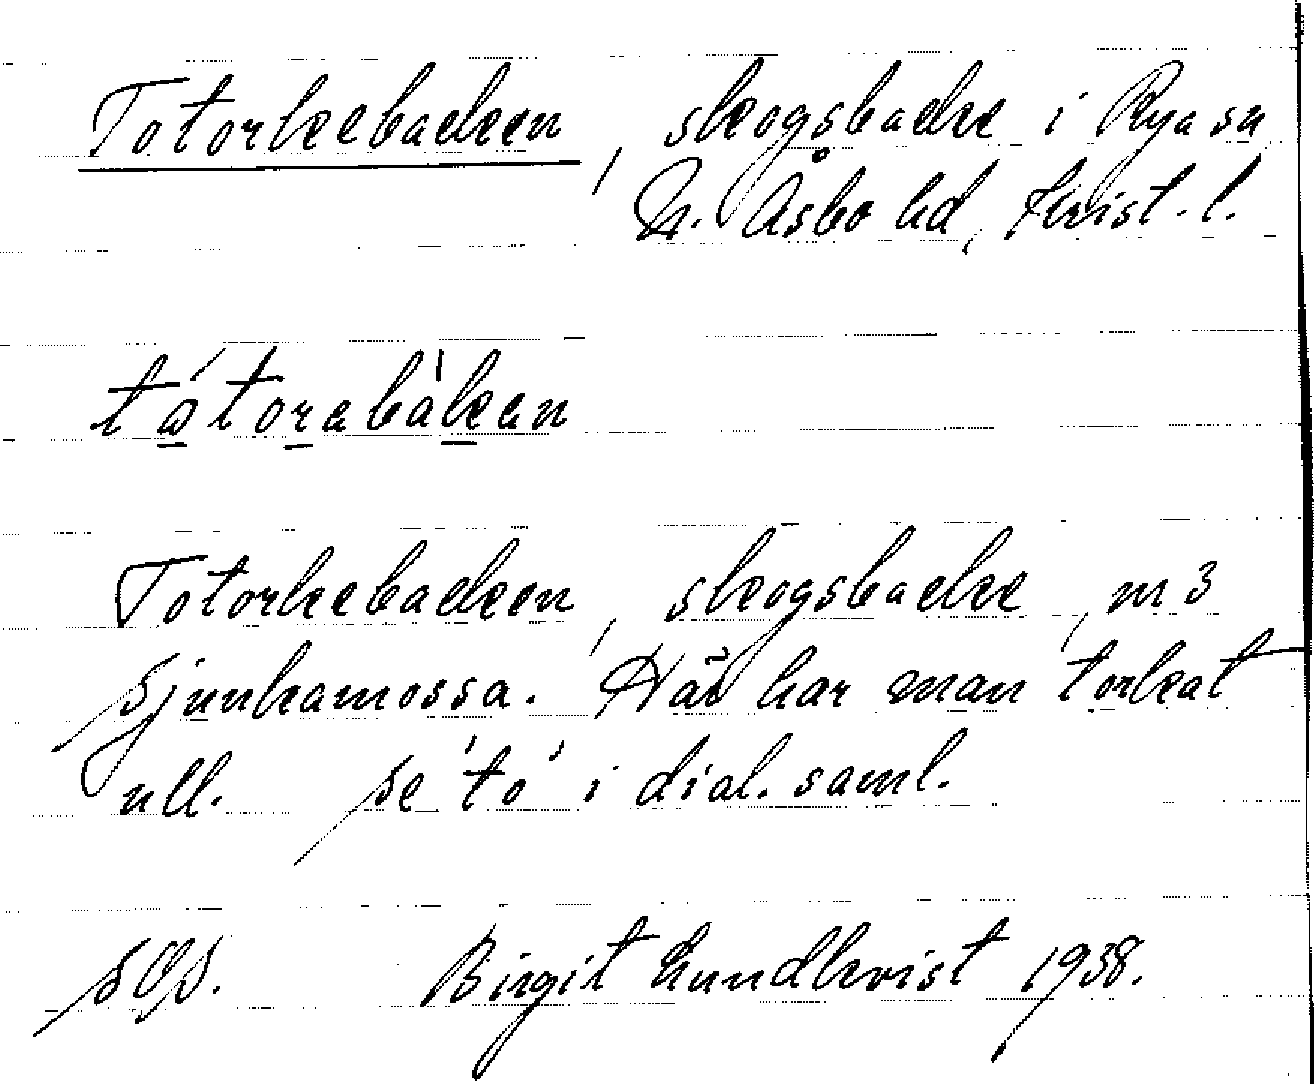 Totorkebacken, skogsbacke i Rya sn
N. Åsbo hd, Krist. l.
tåtorabàkan
Totorkebacken, skogsbacke, m 3
Sjunkamossa. Här har man torkat
ull. Se 'to' i dial. saml.
SOS. Birgit Lundkvist 1938.